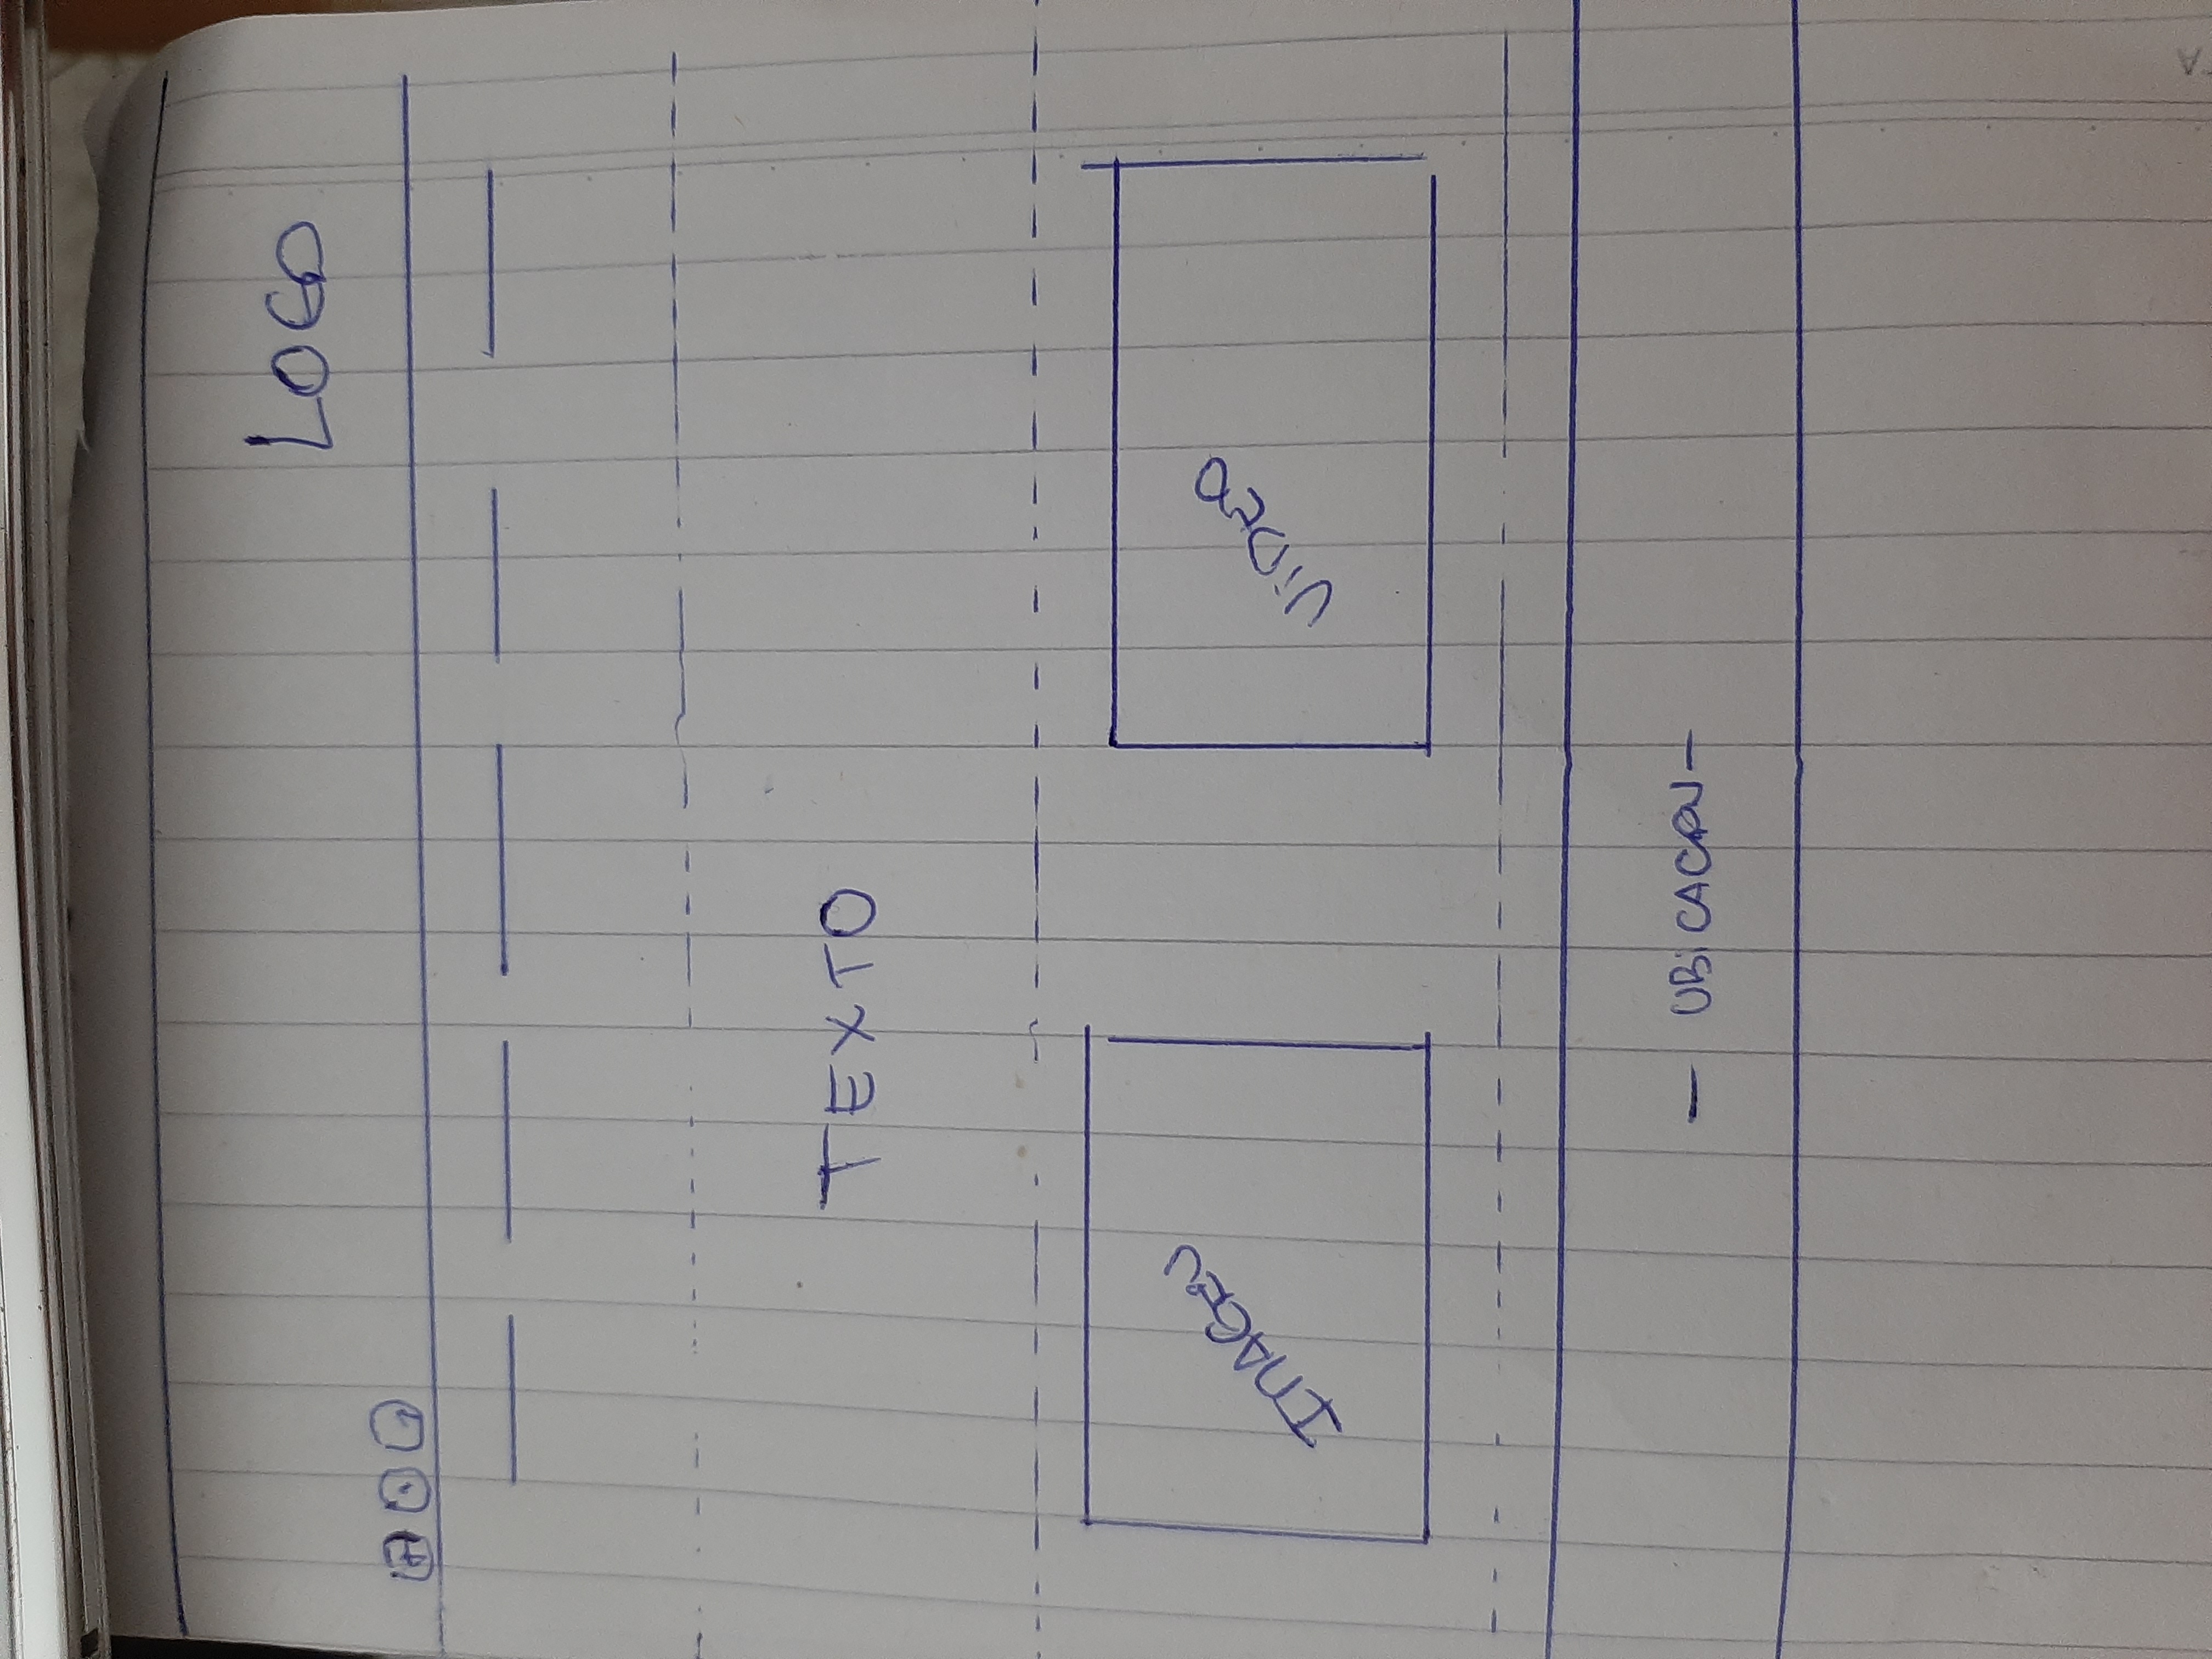 LOGO
TEXTO
IMAGEN
ViDEO
- UBiCACION -